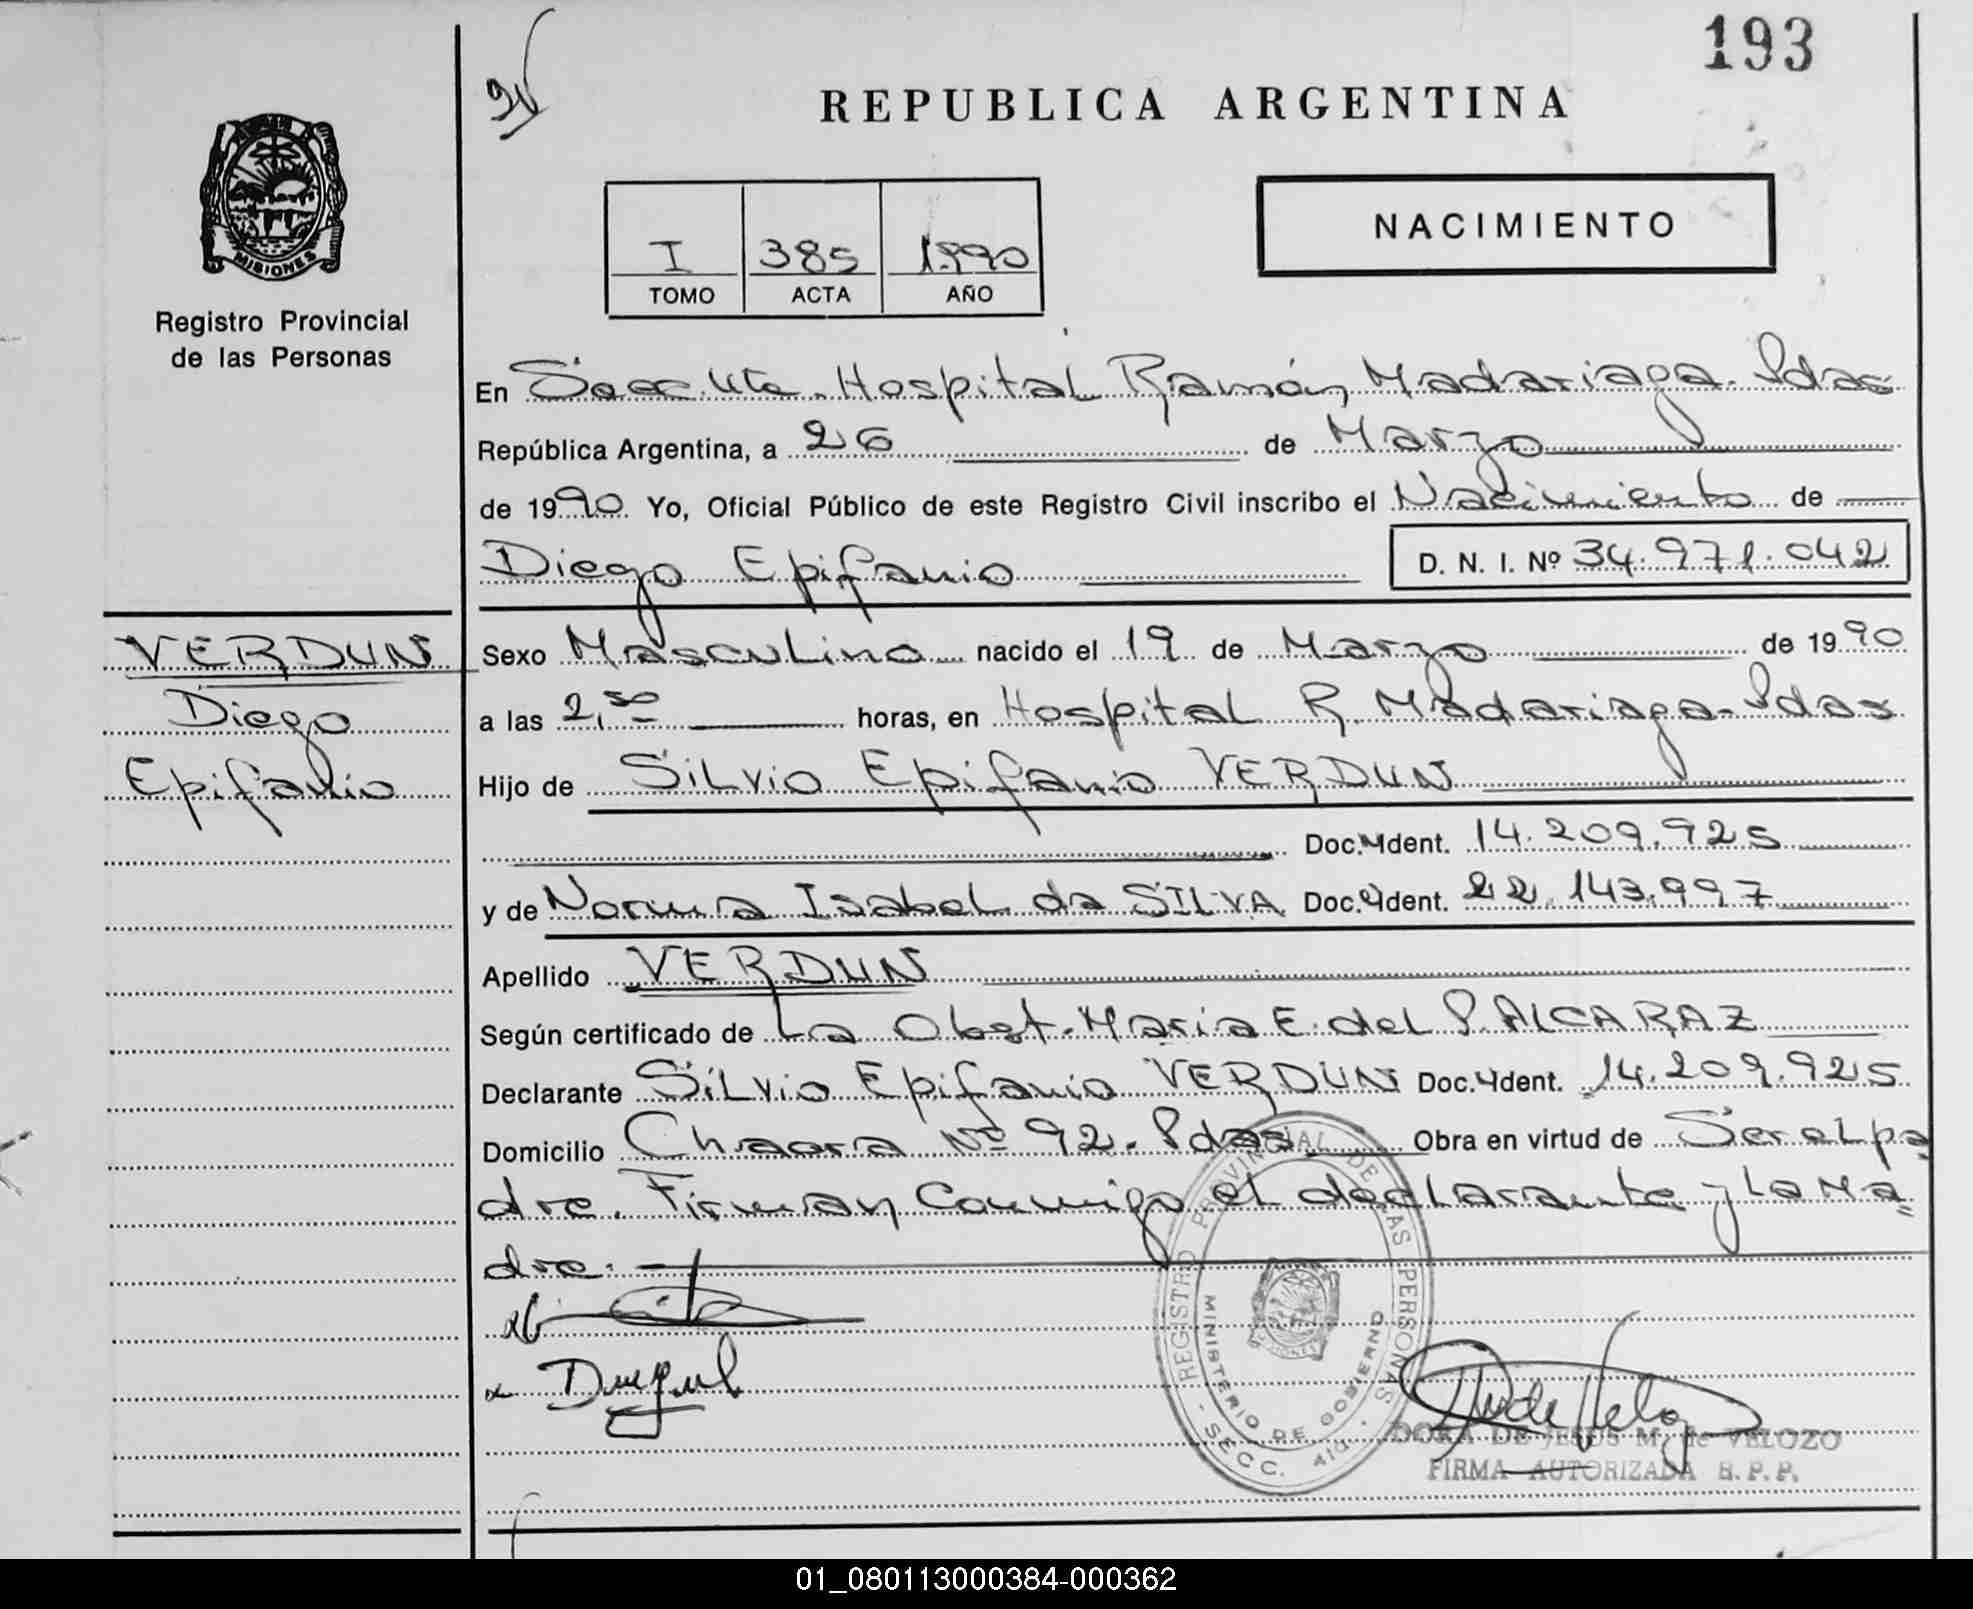 193
REPUBLICA ARGENTINA
MISIONES
Registro Provincial
de las Personas
NACIMIENTO
I 385 1990
TOMO ACTA AÑO
En Secc. 4ta. Hospital Ramón Madariaga - Pdas
República Argentina, a 26 de Marzo
de 1990 Yo, Oficial Público de este Registro Civil inscribo el Nacimiento de
Diego Epifanio D. N. I. Nº 34.971.042
VERDUN
Diego
Epifanio
Sexo Masculino nacido el 19 de Marzo de 1990
a las 2,50 horas, en Hospital R. Madariaga - Pdas
Hijo de Silvio Epifanio VERDUN
Doc. Ident. 14.209.925
y de Norma Isabel da SILVA Doc. Ident. 22.143.997
Apellido VERDUN
Según certificado de La Obst. Maria E. del P. ALCARAZ
Declarante Silvio Epifanio VERDUN Doc. Ident. 14.209.925
Domicilio Chacra Nº 92. Pdas Obra en virtud de Ser el pa
dre. Firman Conmigo el declarante y La Ma
dre.
REGISTRO PROVINCIAL DE LAS PERSONAS
MINISTERIO DE GOBIERNO
SECC. 4ta
DORA DE JESUS M. de VELOZO
FIRMA AUTORIZADA R. P. P.
01_080113000384-000362